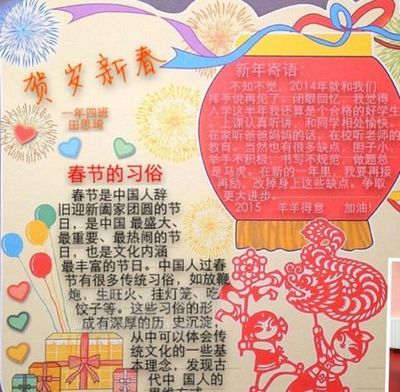 贺岁新春
一年四班
田思琦
春节的习俗
春节是中国人辞
旧迎新阖家团圆的节
日，是中国 最盛大、
最重要、最热闹的节
日，也是文化内涵
最丰富的节日。中国人过春
节有很多传统习俗，如放鞭
炮，生旺火、挂灯笼、吃
饺子等。这些习俗的形
成有深厚的历 史沉淀，
从中可以体会传
统文化的一些基
本理念，发现古
代中 国人的
新年寄语：
不知不觉，2014年就和我们
挥手说再见了，闭眼回忆，我觉得
入学这半年我还算是个合格的好学生
，上课认真听讲，和同学相处愉快。
在家听爸爸妈妈的话，在校听老师的
教育。当然也有很多缺点，胆子小，
举手不积极，书写不规范，做题总
是马虎。在新的一年里，我要再接
再励，改掉身上这些缺点。争取
更大进步。
2015 羊羊得意 加油！